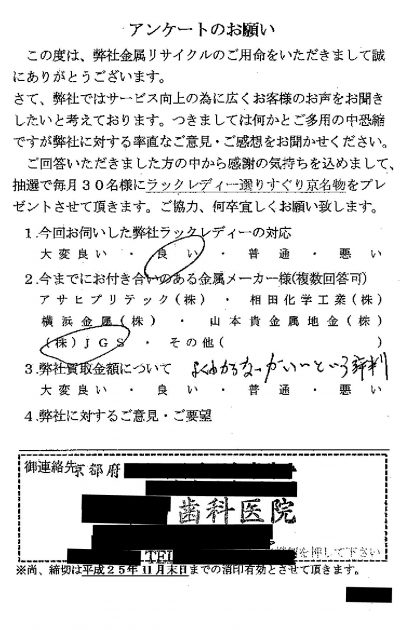 アンケートのお願い
この度は、弊社金属リサイクルのご用命をいただきまして誠
にありがとうございます。
さて、弊社ではサービス向上の為に広くお客様のお声をお聞き
したいと考えております。つきましては何かとご多用の中恐縮
ですが弊社に対する率直なご意見・ご感想をお聞かせください。
ご回答いただきました方の中から感謝の気持ちを込めまして、
抽選で毎月30名様にラックレディー選りすぐり京名物をプレ
ゼントさせて頂きます。ご協力、何卒宜しくお願い致します。
1.今回お伺いした弊社ラックレディーの対応
大変良い ・ 良い ・ 普通 ・ 悪い
2.今までにお付き合いのある金属メーカー様(複数回答可)
アサヒプリテック(株) ・ 相田化学工業(株)
横浜金属(株) ・ 山本貴金属地金(株)
(株)JGS ・ その他( )
3.弊社買取金額について よくわからないがいいという評判
大変良い ・ 良い ・ 普通 ・ 悪い
4.弊社に対するご意見・ご要望
御連絡先 京都府
歯科医院
TEL
を押して下さい
※尚、締切は平成25年11月末日までの消印有効とさせて頂きます。